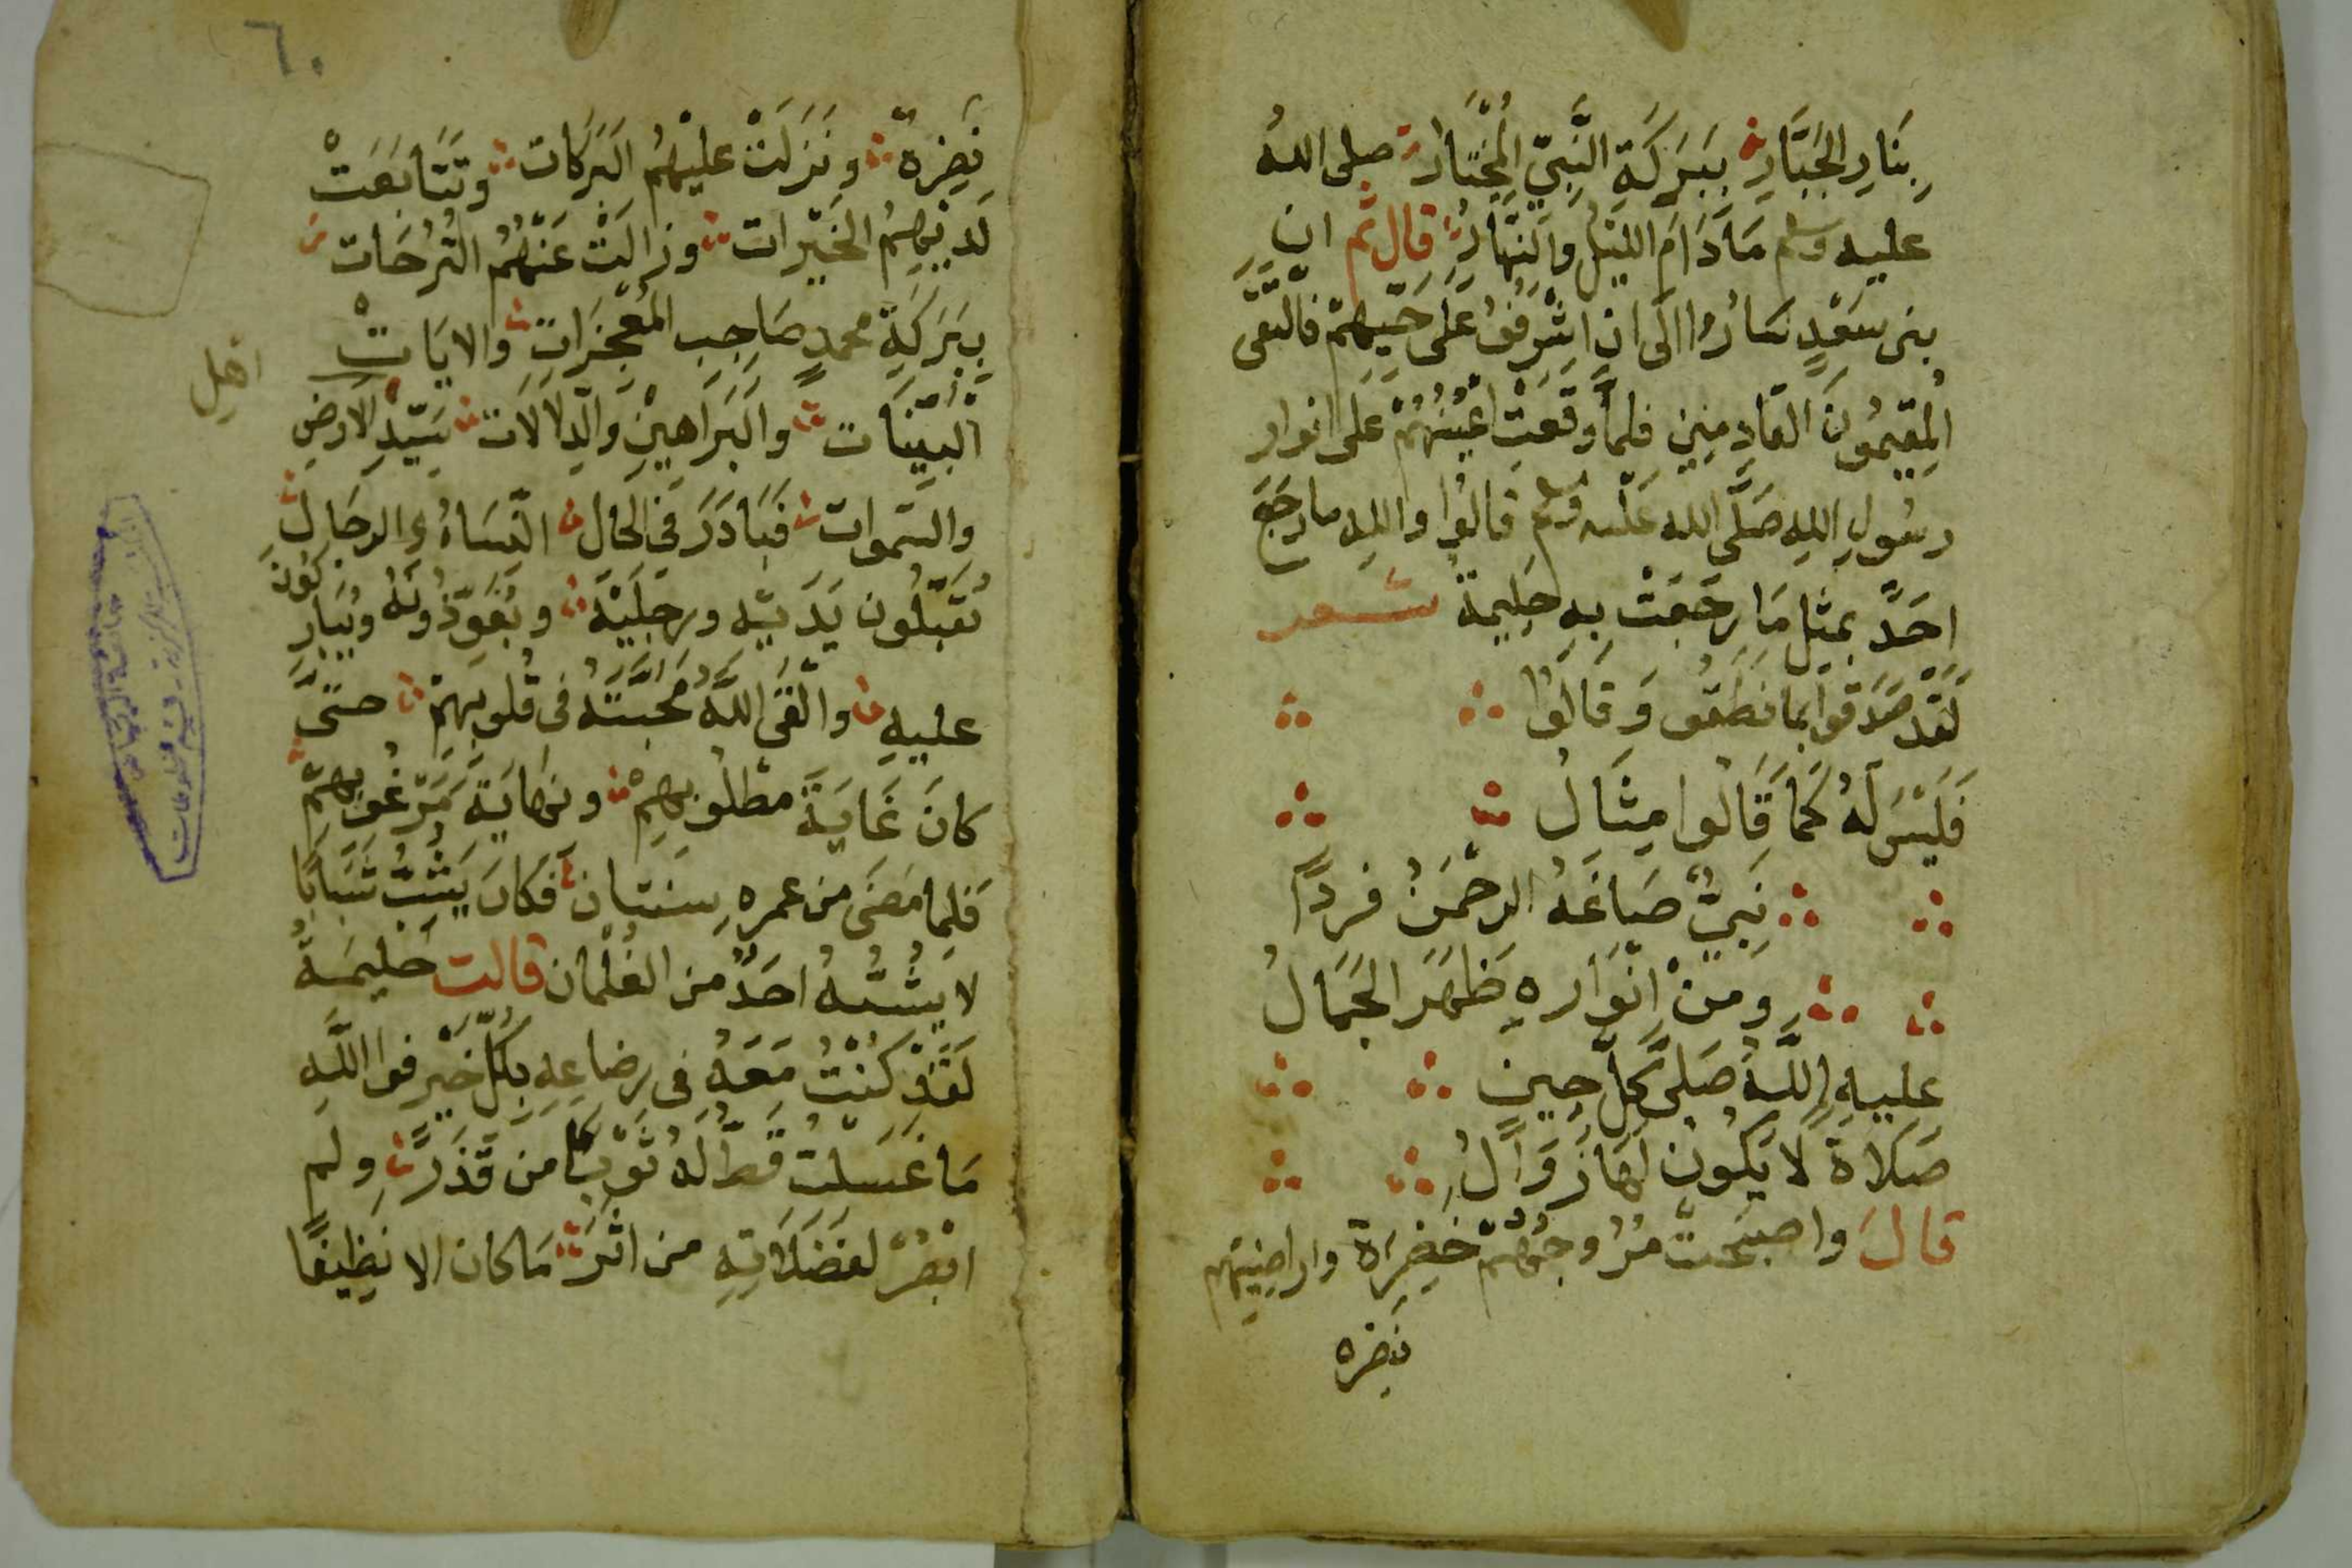 بِنَارِ الجَبَّارِ بِبَرَكَةِ النَّبِيِّ المُخْتَارْ صلى الله
عليه وسلم مَا دَامَ اللَّيْلُ وَالنَّهَارُ قال ثم ان
بنى سَعْدٍ سَارُوا الَى ان اشْرَفُوُ عَلَى حَيِّهِمْ فَالْتَقَى
المُقِيمُونَ القَادِمِينِ فلمَّا وَقَعَتْ اعْيُنُهُمْ عَلَى انوار
رسُولِ اللهِ صَلَّى الله عَلَيْه وسلم قَالُوا واللهِ ما رَجَعَ
احَدٌ بمثِلِ مَا رَجَعَتْ بِهِ حَلِيمة شعر
لَقَدْ صَدَقَوُا بِمَا نَطَقُو وَقَالُوا
فَلَيْسَ لَهُ كَمَا قَالُوا مِثَالُ
نَبِيٌّ صَاغَهُ الرحْمَنُ فردًا
ومنْ انْوَارهِ ظَهَرَ الجَمَالُ
عليهِ اللَّهُ صَلى كُلَّ حِينٍ
صَلاةً لا يَكُونُ لَهَا زَوَالُ
قالَ واصبَحَتْ مُرُوجُهُمْ خَضِرَةً واراضِيهُم
نَضِره
٦٠
نَضِرةً ونَزَلَتْ عليْهِمُ البَرَكَات وتَتَابَعَتْ
لَدَيْهِمُ الخَيْرات وزالَتْ عَنْهُمُ التُرُحَات
بِبَرَكَةِ محمدٍ صَاحِب المُعْجِزَاتِ والايَاتْ
الْبَيِّنَات والبَرَاهِيْنِ والدِّلالاَت سَيّدِ الارْضِ
والسَّموات فبَادَرَ فى الحال النِّسَاءُ والرجَال
يُقَبّلُون يَدَيْه ورجلَيْهْ ويُعَوِّذُونَهُ ويُبَارِكُونَ
عليهِ والْقَى اللَّهُ مَحَبَّتَهُ فى قُلوبِهِمْ حتىَّ
كانَ غَايَةَ مطْلُوبِهِمْ ونهايَةَ مَرْغُوبِهِمْ
فَلما مَضَى من عمرهِ سنتان فكانَ يَشُبُّ شَبَابًا
لا يُشْبهُهُ احَدٌ من الغُلْمان قالت حَليمَةُ
لَقَدْ كُنْتُ مَعَهُ فى رضاعِهِ بكُلِّ خَيْرٍ فوا اللَّهِ
مَا غَسَلْتُ قَطُّ لَهُ ثَوْبًا من قَذَرٍ ولم
ابْصُرْ لفَضَلاتِهِ من اثَرٍ مَا كان الا نَظِيفًا